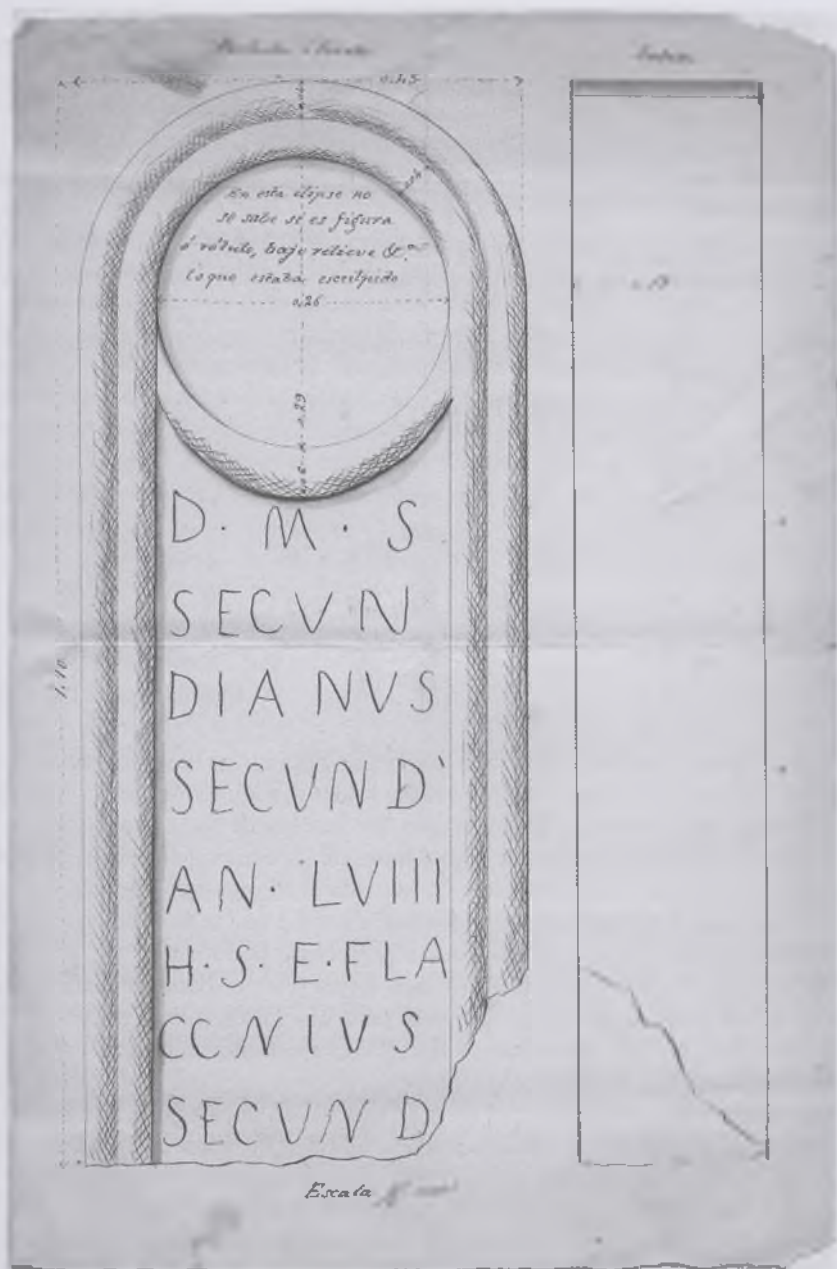 0,45
En esta elipse no
se sabe si es figura
ó rótulo, bajo relieve &.ª
lo que estaba esculpido
0,26
0,29
D. M. S
SECVN
DIANVS
SECVND'
AN. LVIII
H.S. E.FLA
CCNIVS
SECVND
1,10
Escala